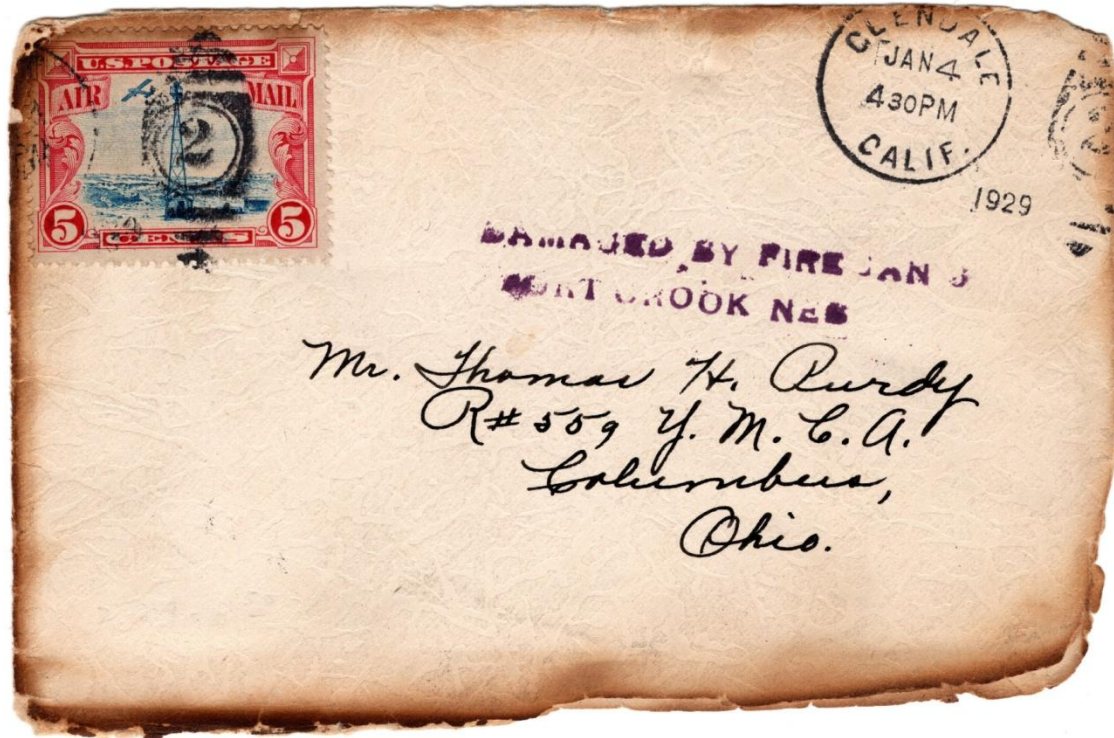 U.S. POSTAGE
AIR MAIL
2
5 CENTS 5
GLENDALE
JAN 4
430 PM
CALIF.
1929
2
DAMAGED BY FIRE JAN
FORT CROOK NEB
Mr. Thomas H. Purdy
R# 559 Y. M. C. A.
Columbus,
Ohio.